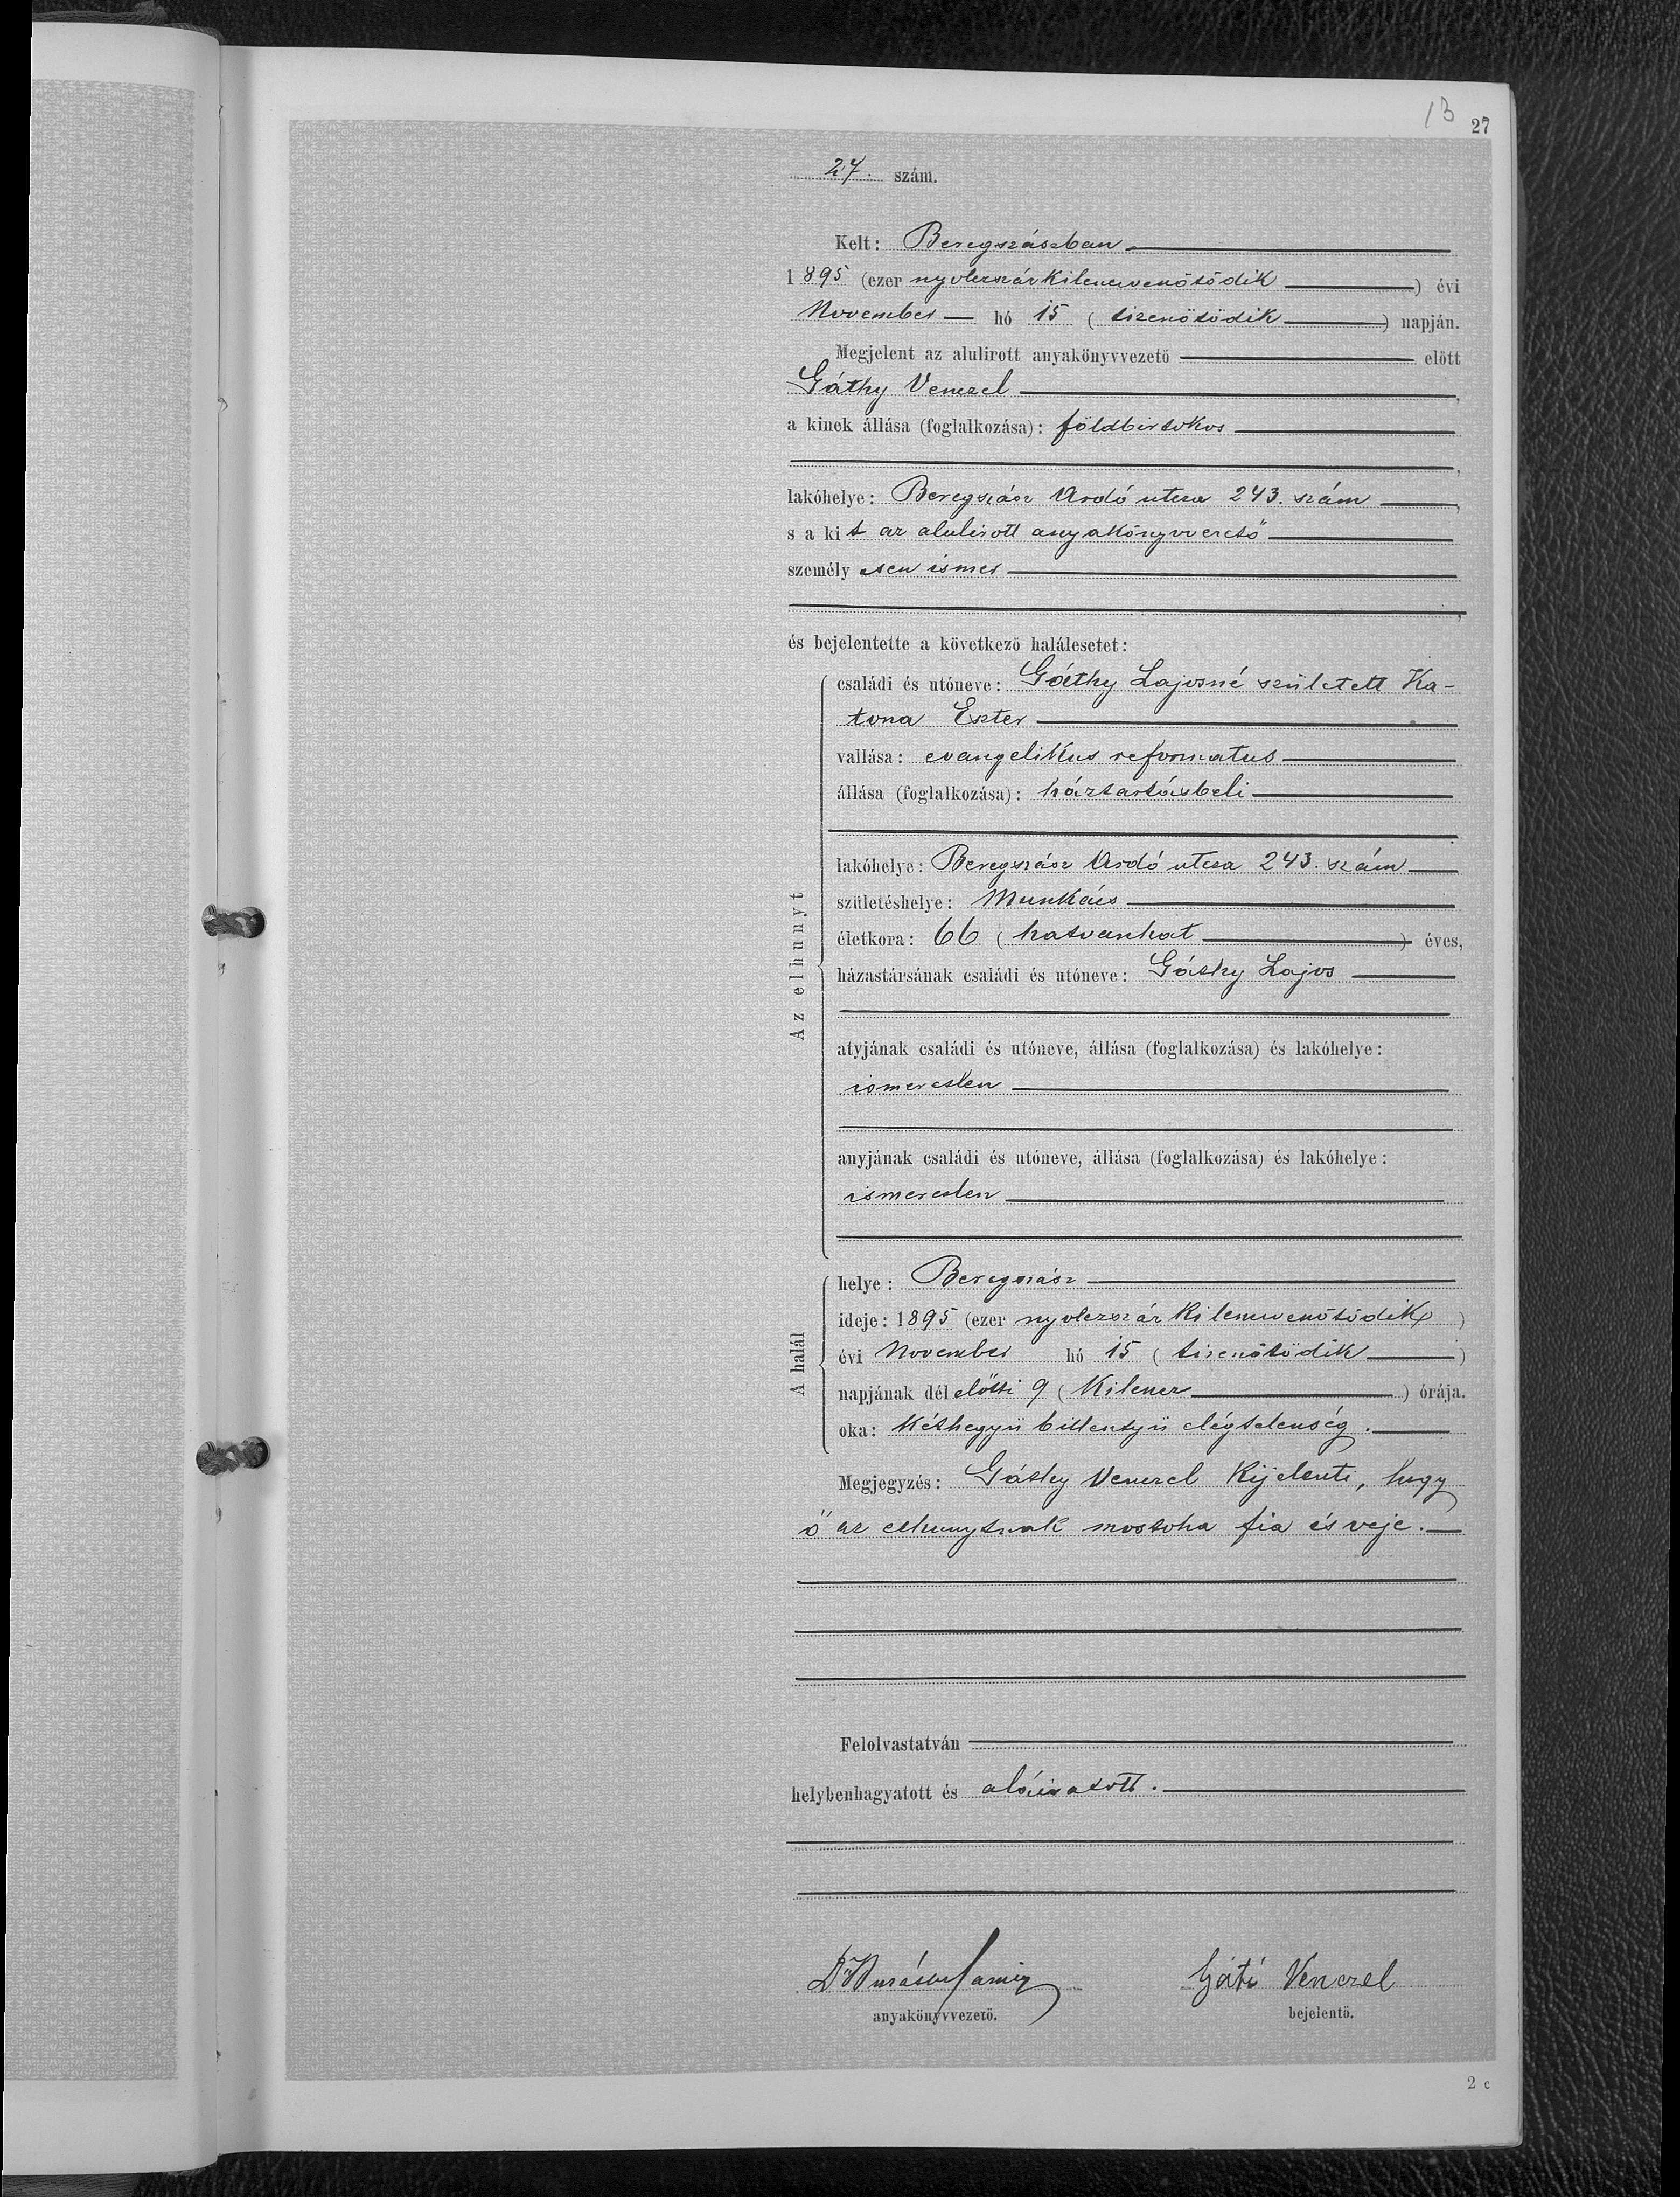 13
27
27. szám.
Kelt: Beregszászban
1895 (ezer nyolczszázkilenczvenötödik) évi
November hó 15 (tizenötödik) napján.
Megjelent az alulirott anyakönyvvezető előtt
Gáthy Venczel,
a kinek állása (foglalkozása): földbirtokos
,
lakóhelye: Beregszász Ardó utcza 243. szám,
s a kit az alulirott anyakönyvvezető
személyesen ismer
,
és bejelentette a következő halálesetet:
Az elhunyt
családi és utóneve: Gáthy Lajosné született Ka-
tona Eszter
vallása: evangelikus reformatus
állása (foglalkozása): háztartásbeli
lakóhelye: Beregszász Ardó utcza 243. szám
születéshelye: Munkács
életkora: 66 (hatvanhat) éves,
házastársának családi és utóneve: Gáthy Lajos
atyjának családi és utóneve, állása (foglalkozása) és lakóhelye:
ismeretlen
anyjának családi és utóneve, állása (foglalkozása) és lakóhelye:
ismeretlen
A halál
helye: Beregszász
ideje: 1895 (ezer nyolczszáz kilenczvenötödik)
évi November hó 15 (tizenötödik)
napjának délelőtti 9 (kilencz) órája.
oka: Kéthegyü billentyü elégtelenség.
Megjegyzés: Gáthy Venczel kijelenti, hogy
ő az elhunytnak mostoha fia és veje.
Felolvastatván
helybenhagyatott és aláiratott.
Gáti Venczel
anyakönyvvezető.
bejelentő.
2 c